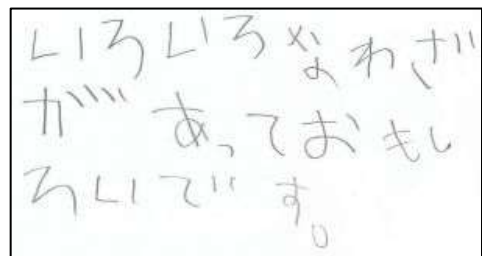 いろいろなわざ
があっておもし
ろいです。